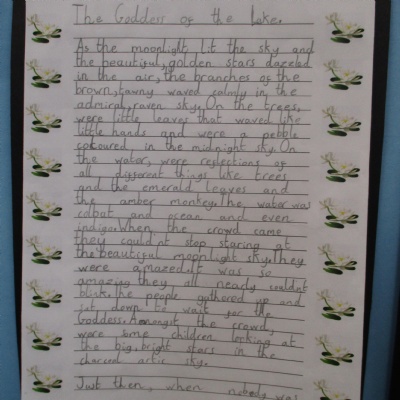 The Goddess of the Lake.
As the moonlight lit the sky and
the beautiful, golden stars dazeled
in the air, the branches of the
brown, tawny waved calmly in the
admiral, raven sky. On the trees,
were little leaves that waved like
little hands and were a pebble
coloured, in the midnight sky. On
the water, were reflections of
all different things like trees
and the emerald leaves and
the amber monkey. The water was
colbat and ocean and even
indigo. When the crowd came
they could'nt stop staring at
the beautiful moonlight sky. They
were amazed. It was so
amazing they all nearly couldn't
blink. The people gathered up and
sat down to wait for the
Goddess. Amongst the crowd,
were some children looking at
the big, bright stars in the
charcoal artic sky.
Just then, when nobody was